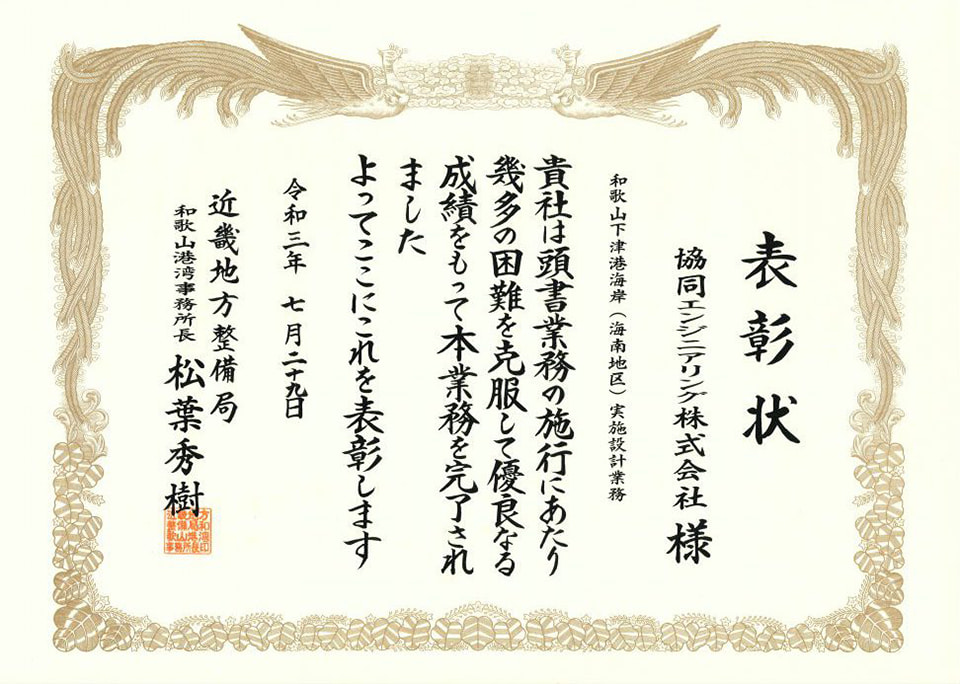 表彰状
協同エンジニアリング株式会社 様
和歌山下津港海岸（海南地区）実施設計業務
貴社は頭書業務の施行にあたり
幾多の困難を克服して優良なる
成績をもって本業務を完了され
ました
よってここにこれを表彰します
令和三年 七月二十九日
近畿地方整備局
和歌山港湾事務所長 松葉秀樹